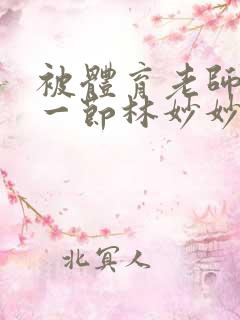 被體育老師
一節林妙妙
北冥人